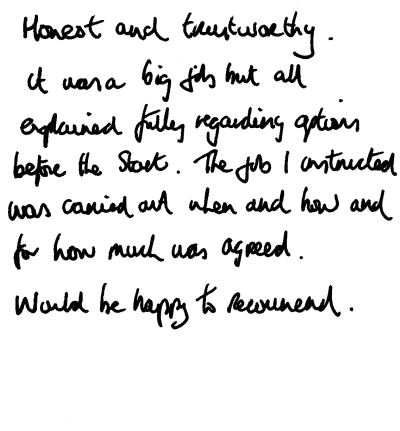 Honest and trustworthy.
It was a big job but all
explained fully regarding options
before the Start. The job I instructed
was carried out when and how and
for how much was agreed.
Would be happy to recommend.